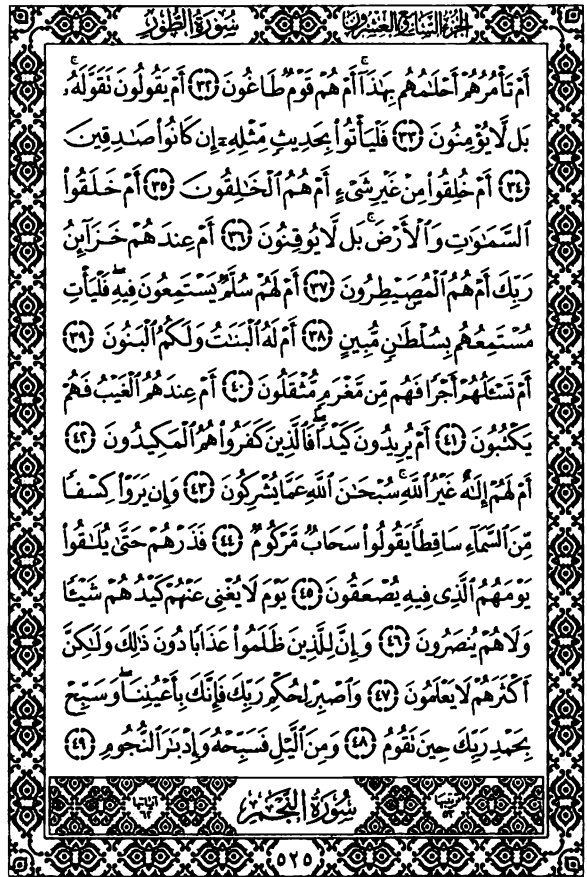 سُورَةُ الطُّورِ الجُزْءُ السَّابِعُ وَالعِشْرُونَ
أَمْ تَأْمُرُهُمْ أَحْلَٰمُهُم بِهَٰذَآ ۚ أَمْ هُمْ قَوْمٌ طَاغُونَ ٣٢ أَمْ يَقُولُونَ تَقَوَّلَهُۥ ۚ
بَل لَّا يُؤْمِنُونَ ٣٣ فَلْيَأْتُوا۟ بِحَدِيثٍ مِّثْلِهِۦٓ إِن كَانُوا۟ صَٰدِقِينَ
٣٤ أَمْ خُلِقُوا۟ مِنْ غَيْرِ شَىْءٍ أَمْ هُمُ الْخَٰلِقُونَ ٣٥ أَمْ خَلَقُوا۟
السَّمَٰوَٰتِ وَالْأَرْضَ ۚ بَل لَّا يُوقِنُونَ ٣٦ أَمْ عِندَهُمْ خَزَآئِنُ
رَبِّكَ أَمْ هُمُ الْمُصَۣيْطِرُونَ ٣٧ أَمْ لَهُمْ سُلَّمٌ يَسْتَمِعُونَ فِيهِ ۖ فَلْيَأْتِ
مُسْتَمِعُهُم بِسُلْطَٰنٍ مُّبِينٍ ٣٨ أَمْ لَهُ الْبَنَٰتُ وَلَكُمُ الْبَنُونَ ٣٩
أَمْ تَسْـَٔلُهُمْ أَجْرًا فَهُم مِّن مَّغْرَمٍ مُّثْقَلُونَ ٤٠ أَمْ عِندَهُمُ الْغَيْبُ فَهُمْ
يَكْتُبُونَ ٤١ أَمْ يُرِيدُونَ كَيْدًا ۖ فَالَّذِينَ كَفَرُوا۟ هُمُ الْمَكِيدُونَ ٤٢
أَمْ لَهُمْ إِلَٰهٌ غَيْرُ اللَّهِ ۚ سُبْحَٰنَ اللَّهِ عَمَّا يُشْرِكُونَ ٤٣ وَإِن يَرَوْا۟ كِسْفًا
مِّنَ السَّمَآءِ سَاقِطًا يَقُولُوا۟ سَحَابٌ مَّرْكُومٌ ٤٤ فَذَرْهُمْ حَتَّىٰ يُلَٰقُوا۟
يَوْمَهُمُ الَّذِى فِيهِ يُصْعَقُونَ ٤٥ يَوْمَ لَا يُغْنِى عَنْهُمْ كَيْدُهُمْ شَيْـًٔا
وَلَا هُمْ يُنصَرُونَ ٤٦ وَإِنَّ لِلَّذِينَ ظَلَمُوا۟ عَذَابًا دُونَ ذَٰلِكَ وَلَٰكِنَّ
أَكْثَرَهُمْ لَا يَعْلَمُونَ ٤٧ وَاصْبِرْ لِحُكْمِ رَبِّكَ فَإِنَّكَ بِأَعْيُنِنَا ۖ وَسَبِّحْ
بِحَمْدِ رَبِّكَ حِينَ تَقُومُ ٤٨ وَمِنَ الَّيْلِ فَسَبِّحْهُ وَإِدْبَٰرَ النُّجُومِ ٤٩
ترتيبها ٥٣ سُورَةُ النَّجْمِ آياتها ٦٢
٥٢٥